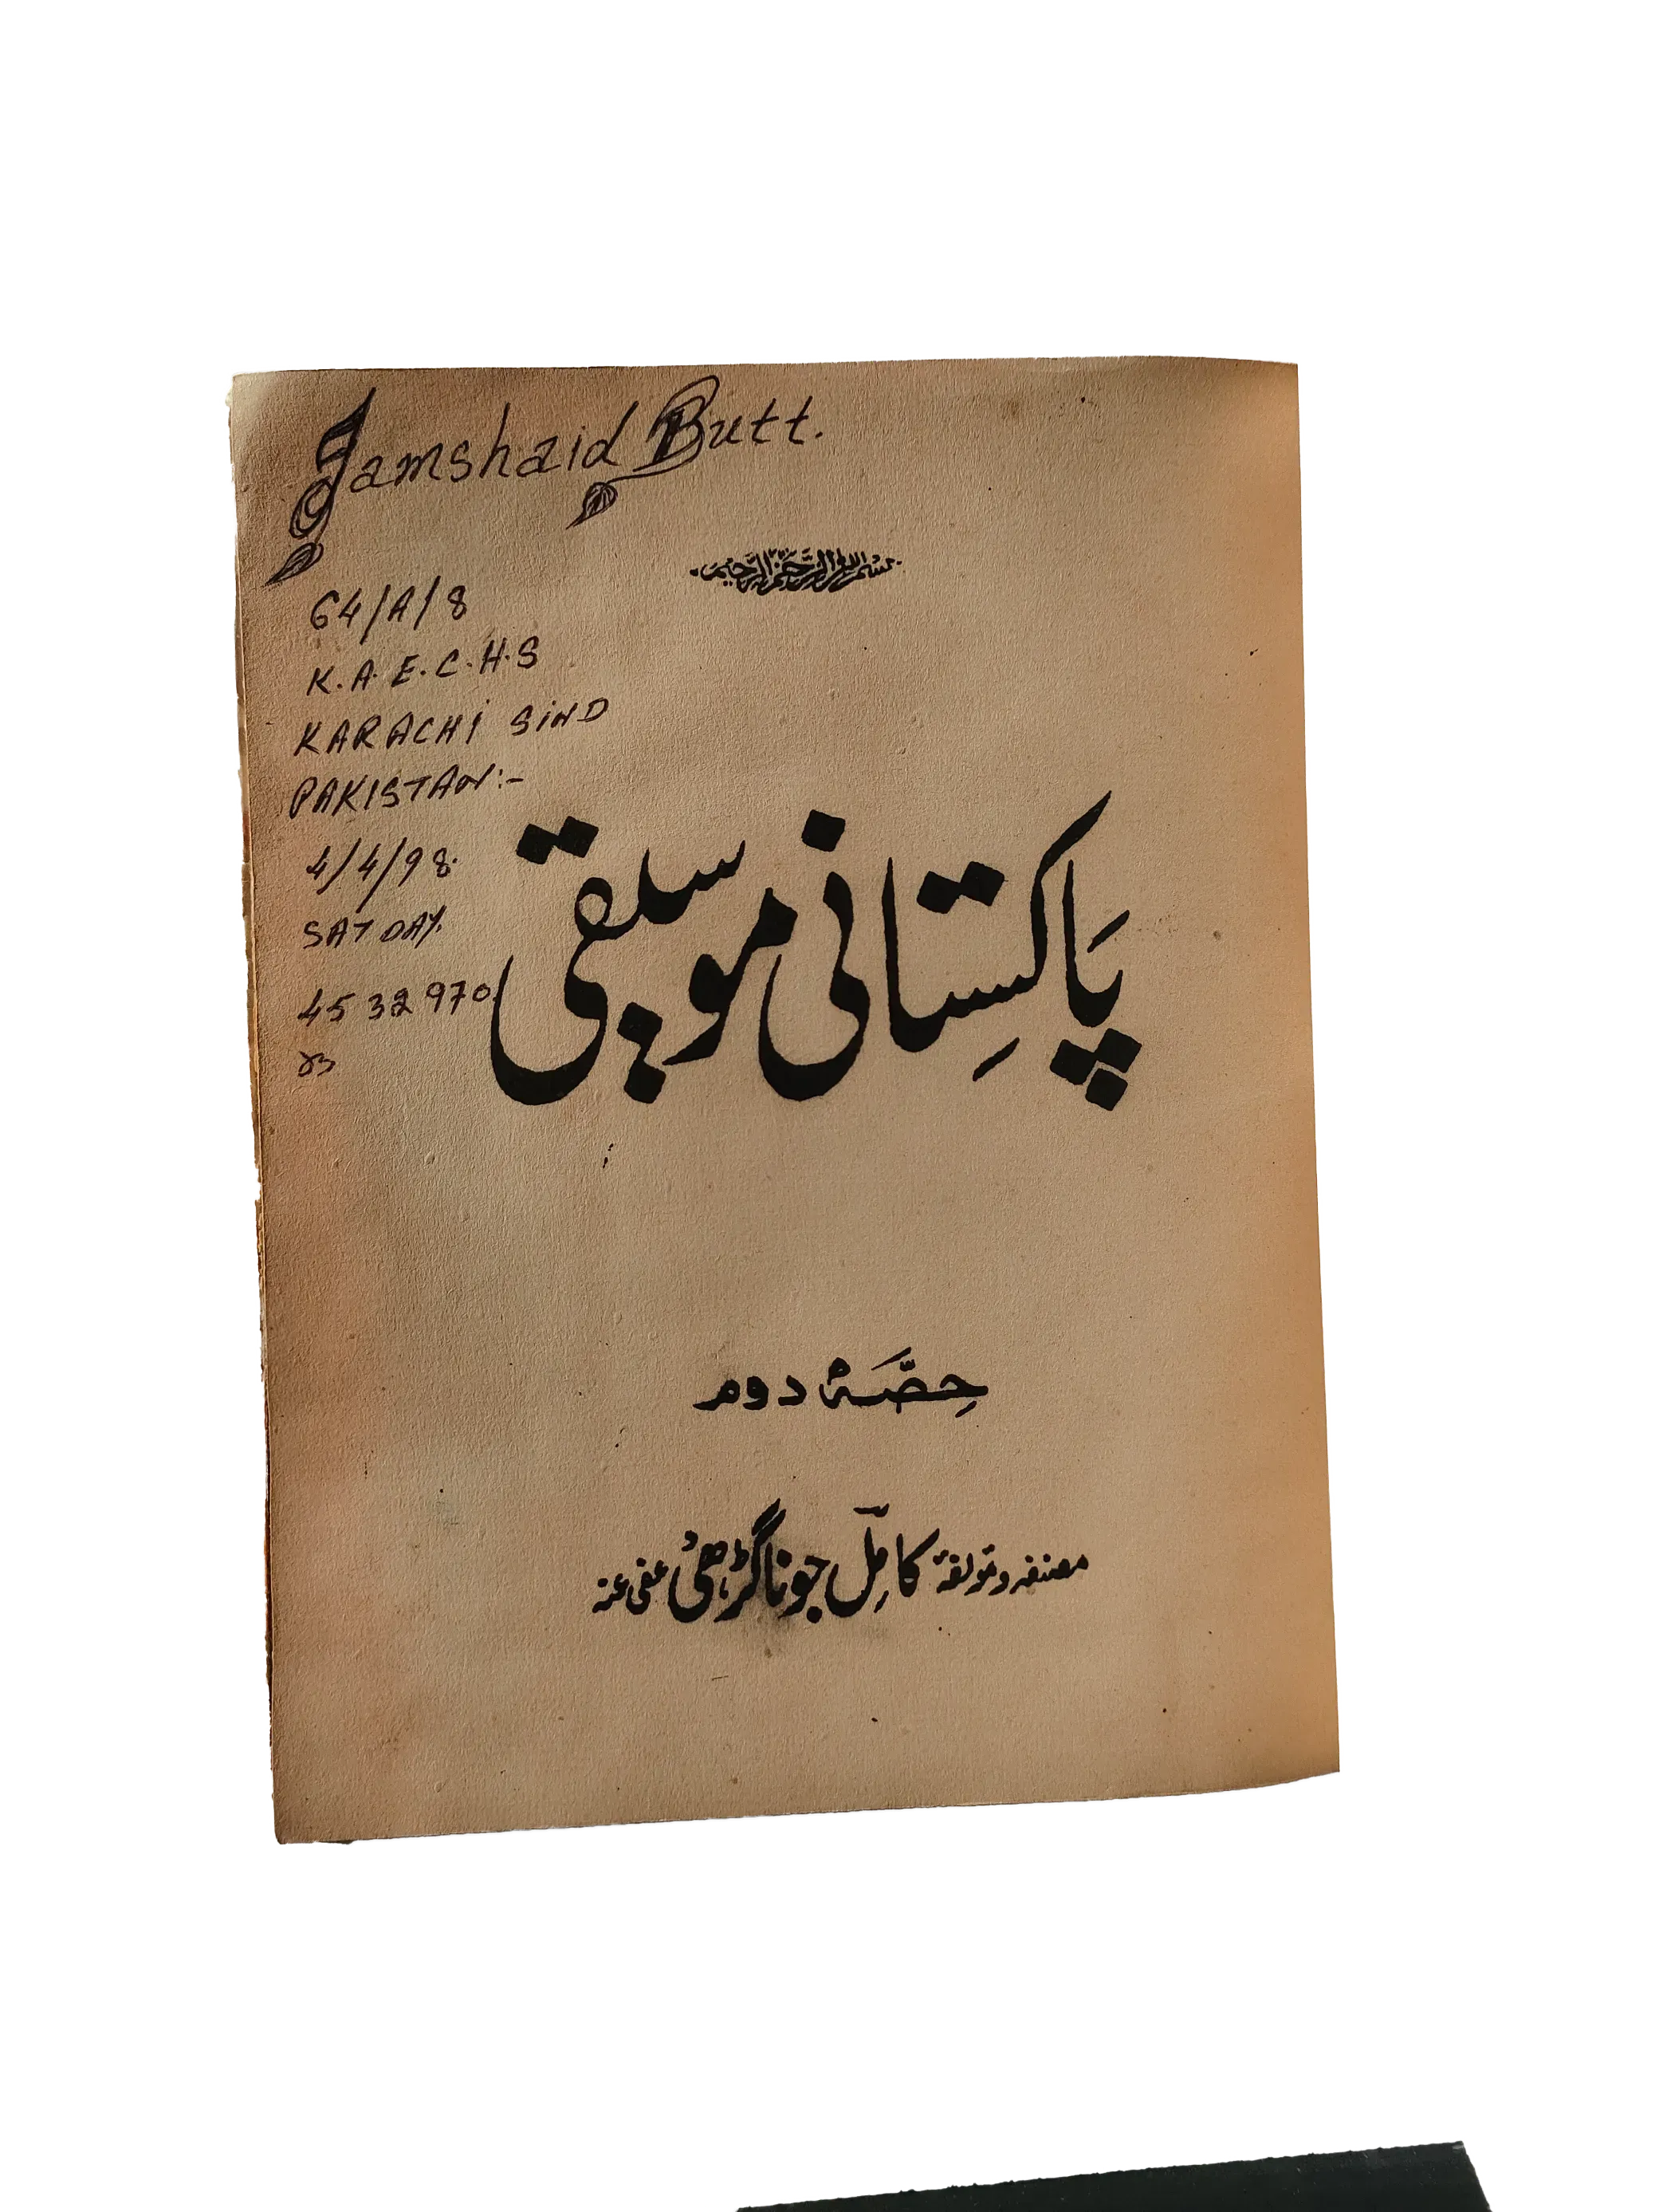 Jamshaid Butt.
بسم الله الرحمن الرحيم
64/A/8
K.A.E.C.H.S
KARACHI SIND
PAKISTAN:-
4/4/98.
SATDAY.
4532970
پاکستانی موسیقی
حصہ دوم
مصنفہ و مولفہ کامل جوناگڑھی عفی عنہ